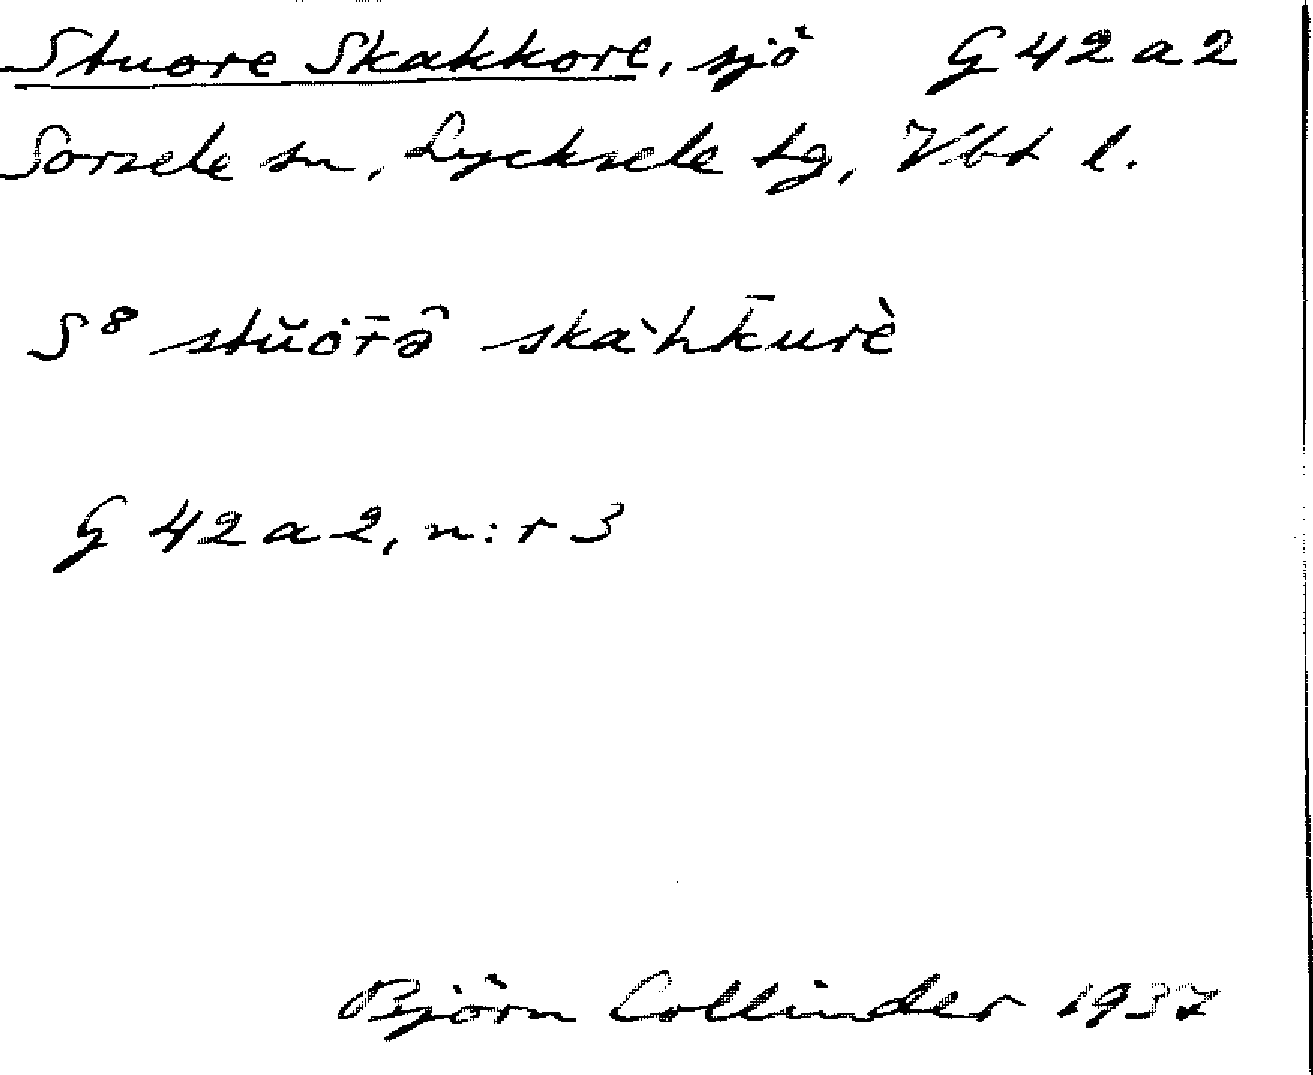 Stuore Skakkore, sjö G 42 a 2
Sorsele sn, Lycksele tg, Vbt l.
S⁸ stŭȯr̄ə̑ skàhk̄urè
G 42 a 2, n:r 3
Björn Collinder 1937